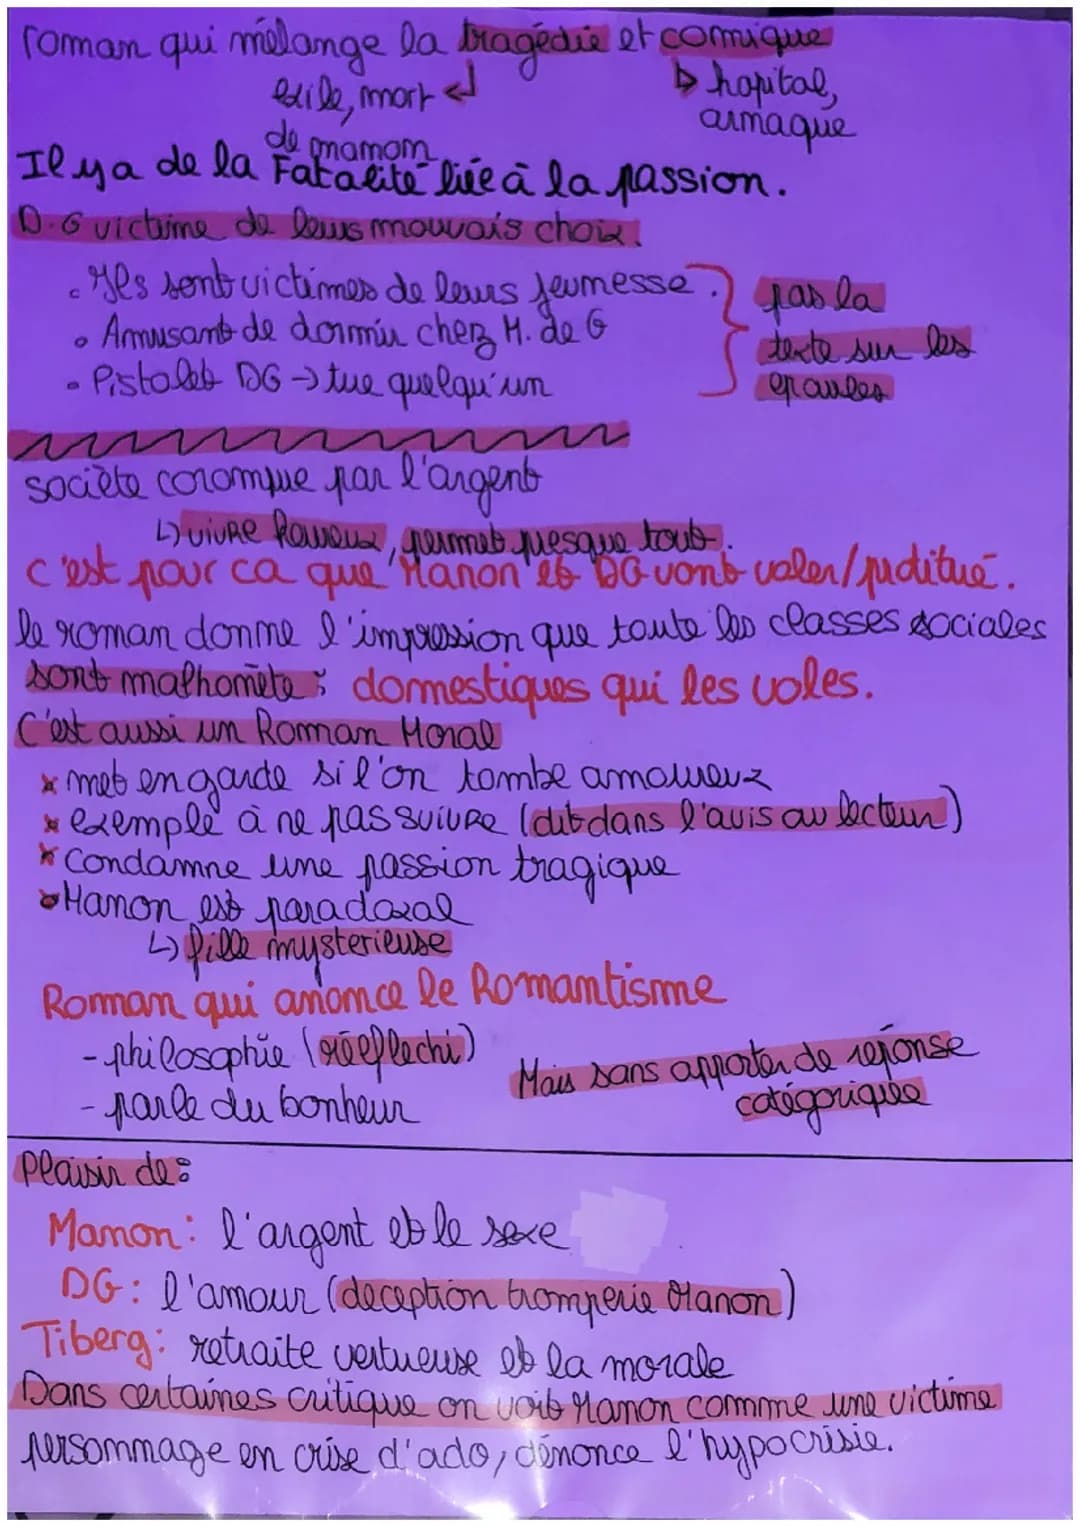 roman qui mélange la tragédie et comique
exile, mort ↲ ↳ hopital,
de mamom arnaque
Il y a de la Fatalité liée à la passion.
D.G victime de leurs mauvais choix.
• Ils sont victimes de leurs jeunesse.
• Amusant de dormir chez M. de G
• Pistolet DG → tue quelqu'un
pas la
texte sur les
epaules
sociète corompue par l'argent
↳ vivre heureux, permet presque tout.
c'est pour ca que Manon et DG vont voler/puditué.
le roman donne l'impression que toute les classes sociales
sont malhonète : domestiques qui les voles.
C'est aussi un Roman Moral
× met en garde si l'on tombe amoureux
× exemple à ne pas suivre (dit dans l'avis au lecteur)
× Condamne une passion tragique
• Manon est paradoxal
↳ fille mysterieuse
Roman qui anonce le Romantisme
- philosophie (réeflechi)
- parle du bonheur
Mais sans apporter de réponse
catégorique
Plaisir de :
Manon : l'argent et le sexe
DG : l'amour (deception tromperie Manon)
Tiberg : retraite vertueuse et la morale
Dans certaines critique on voit Manon comme une victime
personnage en crise d'ado, dénonce l'hypocrisie.